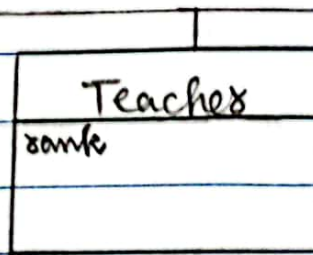 Teacher
rank